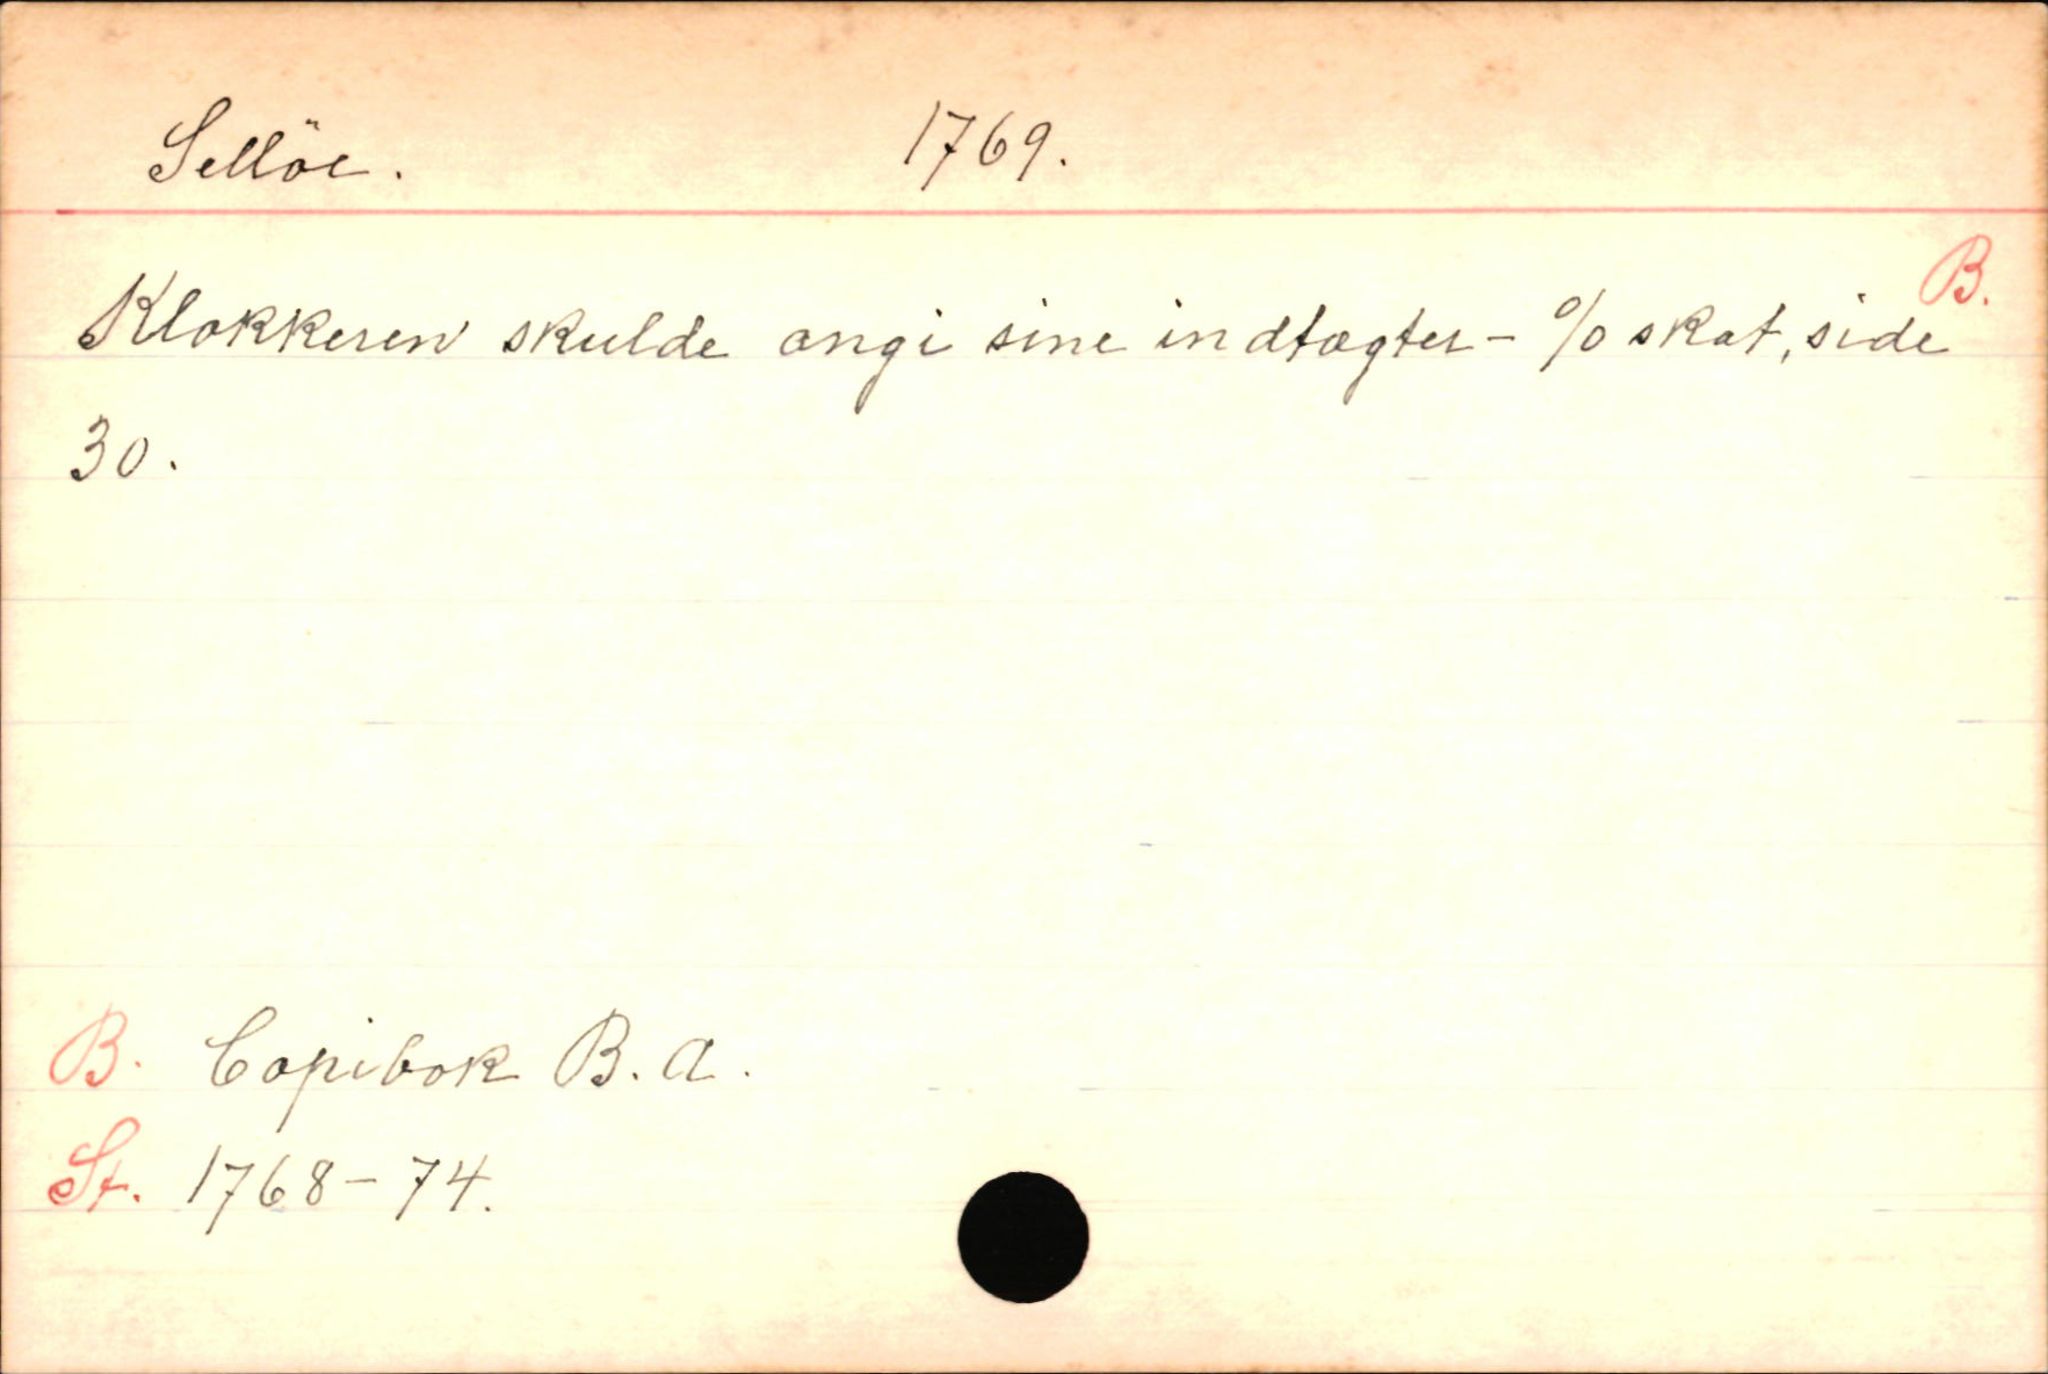 Sellöe. 1769.
B.
Klokkeren skulde angi sine indtægter - % skat, side
30.
B. Copibok B. A.
St. 1768-74.